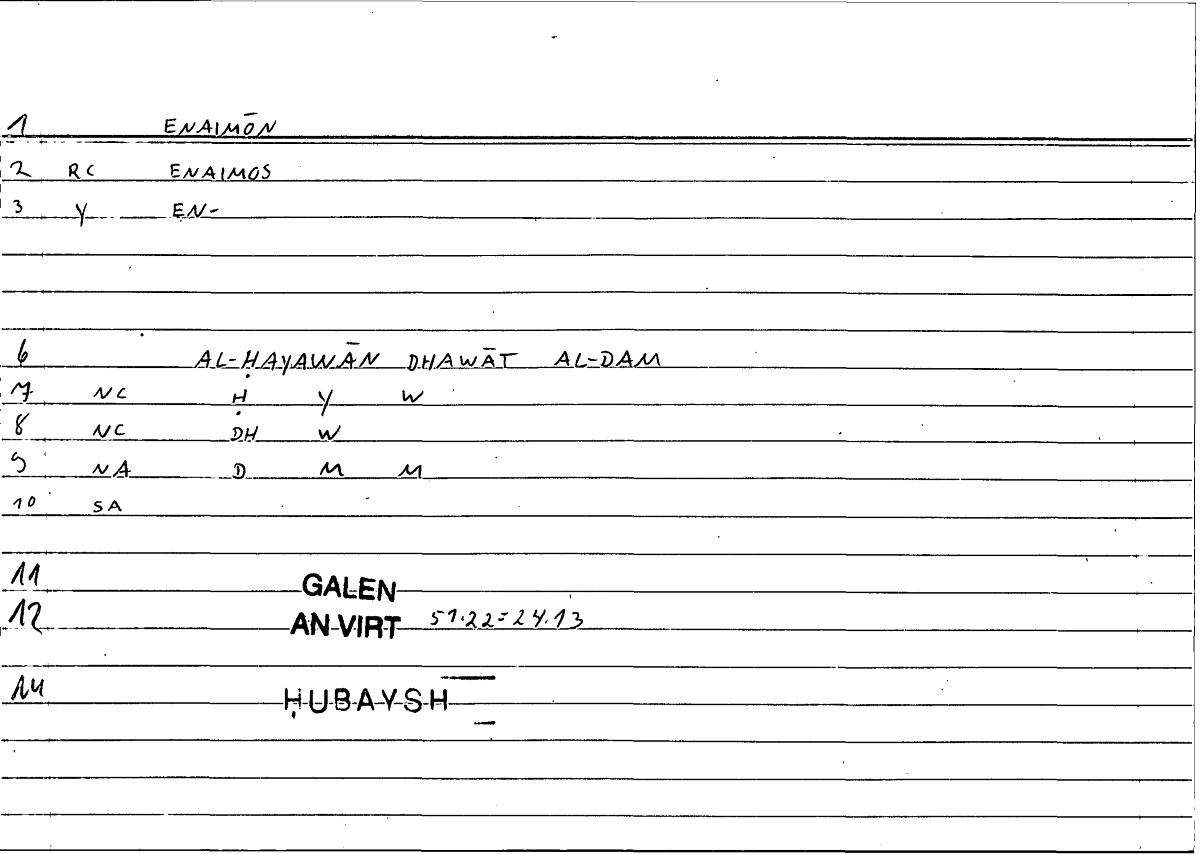 1 ENAIMŌN
2 RC ENAIMOS
3 Y EN-
6 AL-ḤAYAWĀN DHAWĀT AL-DAM
7 NC Ḥ Y W
8 NC DH W
9 NA D M M
10 SA
11 GALEN
12 AN VIRT 51.22=24.13
14 ḤUBAYSH